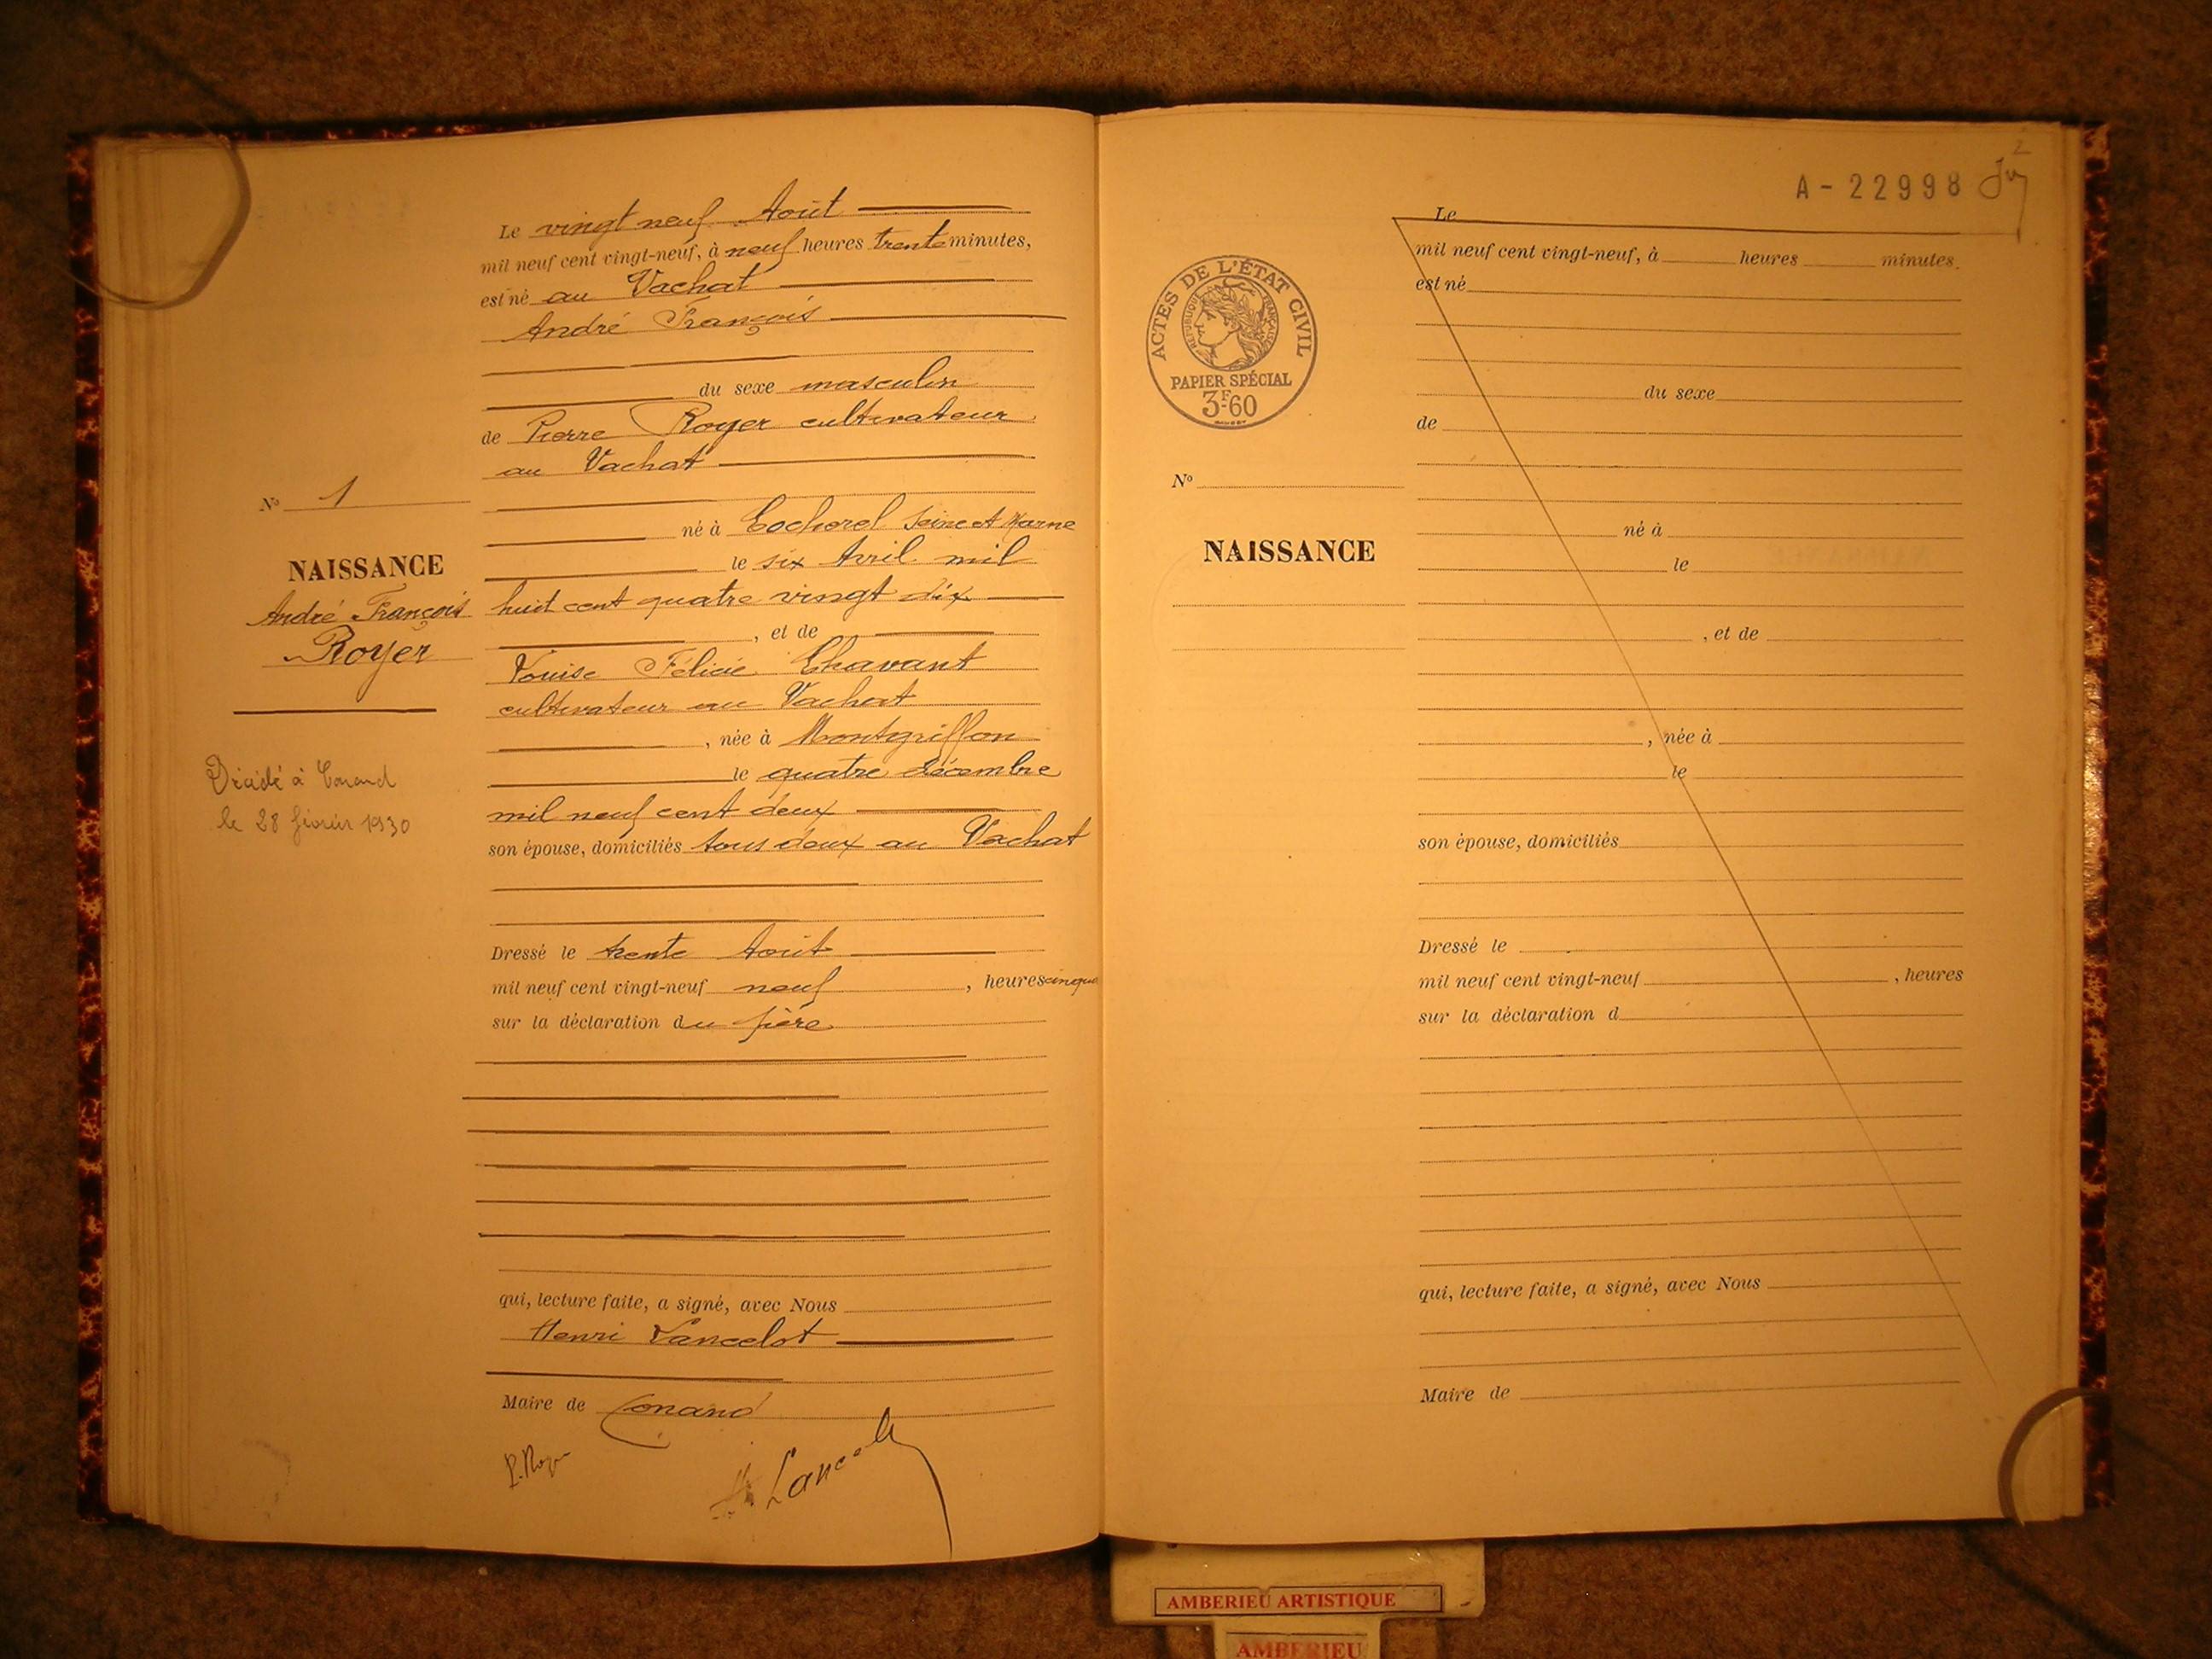 Le vingt neuf Août
mil neuf cent vingt-neuf, à neuf heures trente minutes,
est né au Vachat
André François
du sexe masculin
de Pierre Royer cultivateur
au Vachat
né à Cocherel Seine et Marne
le six Avril mil
huit cent quatre vingt dix
, et de
Louise Félicie Chavant
cultivateur au Vachat
, née à Montgriffon
le quatre décembre
mil neuf cent deux
son épouse, domiciliés tous deux au Vachat
Dressé le trente Août
mil neuf cent vingt-neuf neuf , heures cinq
sur la déclaration du père
qui, lecture faite, a signé, avec Nous
Henri Lancelot
Maire de Conand
P. Royer
H. Lancelot
No 1
NAISSANCE
André François
Royer
Décédé à Conand
le 28 février 1930
A-22998
2
ACTES DE L'ÉTAT CIVIL
RÉPUBLIQUE FRANÇAISE
PAPIER SPÉCIAL
3F60
No
NAISSANCE
Le
mil neuf cent vingt-neuf, à heures minutes,
est né
du sexe
de
né à
le
, et de
, née à
le
son épouse, domiciliés
Dressé le
mil neuf cent vingt-neuf , heures
sur la déclaration d
qui, lecture faite, a signé, avec Nous
Maire de
AMBERIEU ARTISTIQUE
AMBERIEU